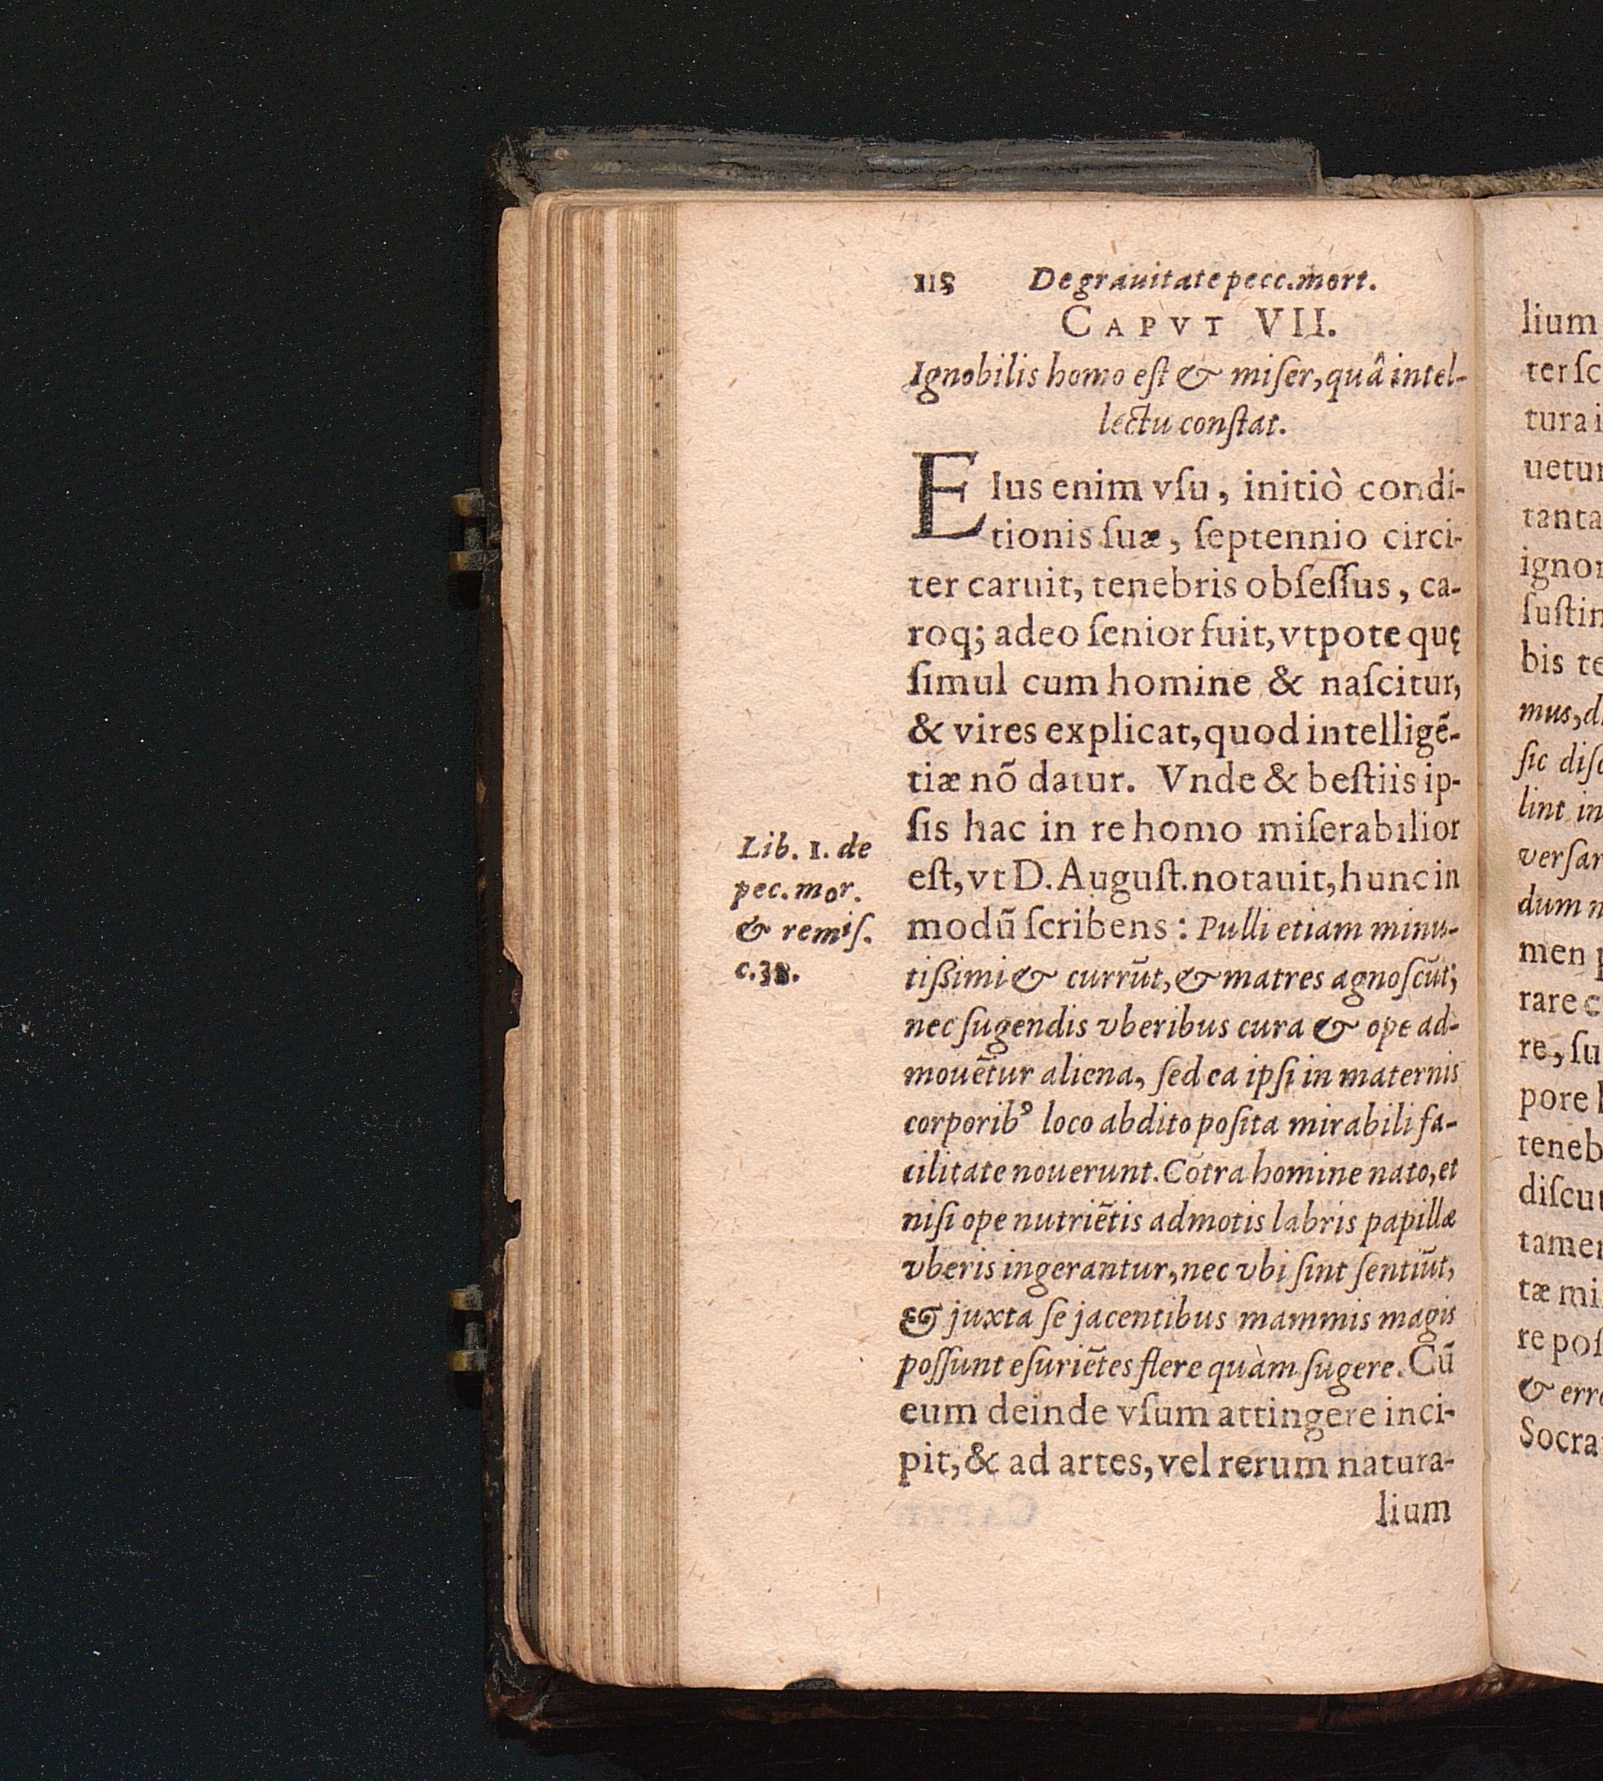 118 De grauitate pecc.mort.
CAPVT VII.
Ignobilis homo eſt & miſer,quâ intel-
lectu conſtat.
EIus enim vſu, initiò condi-
tionis ſuæ, ſeptennio circi-
ter caruit, tenebris obſeſſus, ca-
roq; adeo ſenior fuit,vtpote quę
ſimul cum homine & naſcitur,
& vires explicat,quod intelligẽ-
tiæ nõ datur. Vnde & beſtiis ip-
ſis hac in re homo miſerabilior
eſt,vt D.Auguſt.notauit,hunc in
modũ ſcribens: Pulli etiam minu-
tißimi & currũt,& matres agnoſcũt;
nec ſugendis vberibus cura & ope ad-
mouẽtur aliena, ſed ea ipſi in maternis
corporibꝰ loco abdito poſita mirabili fa-
cilitate nouerunt.Cõtra homine nato,et
niſi ope nutriẽtis admotis labris papillæ
vberis ingerantur,nec vbi ſint ſentiũt,
& juxta ſe jacentibus mammis magis
poſſunt eſuriẽtes flere quàm ſugere.Cũ
eum deinde vſum attingere inci-
pit,& ad artes,vel rerum natura-
lium
Lib. 1. de
pec.mor.
& remiſ.
c.38.
lium
ter ſc
tura i
uetur
tanta
ignor
ſuſtin
bis te
mus,d
ſic diſc
lint in
verſar
dum n
men p
rare c
re,ſu
pore
teneb
diſcu
tamen
tæ mi
re poſ
& erro
Socra